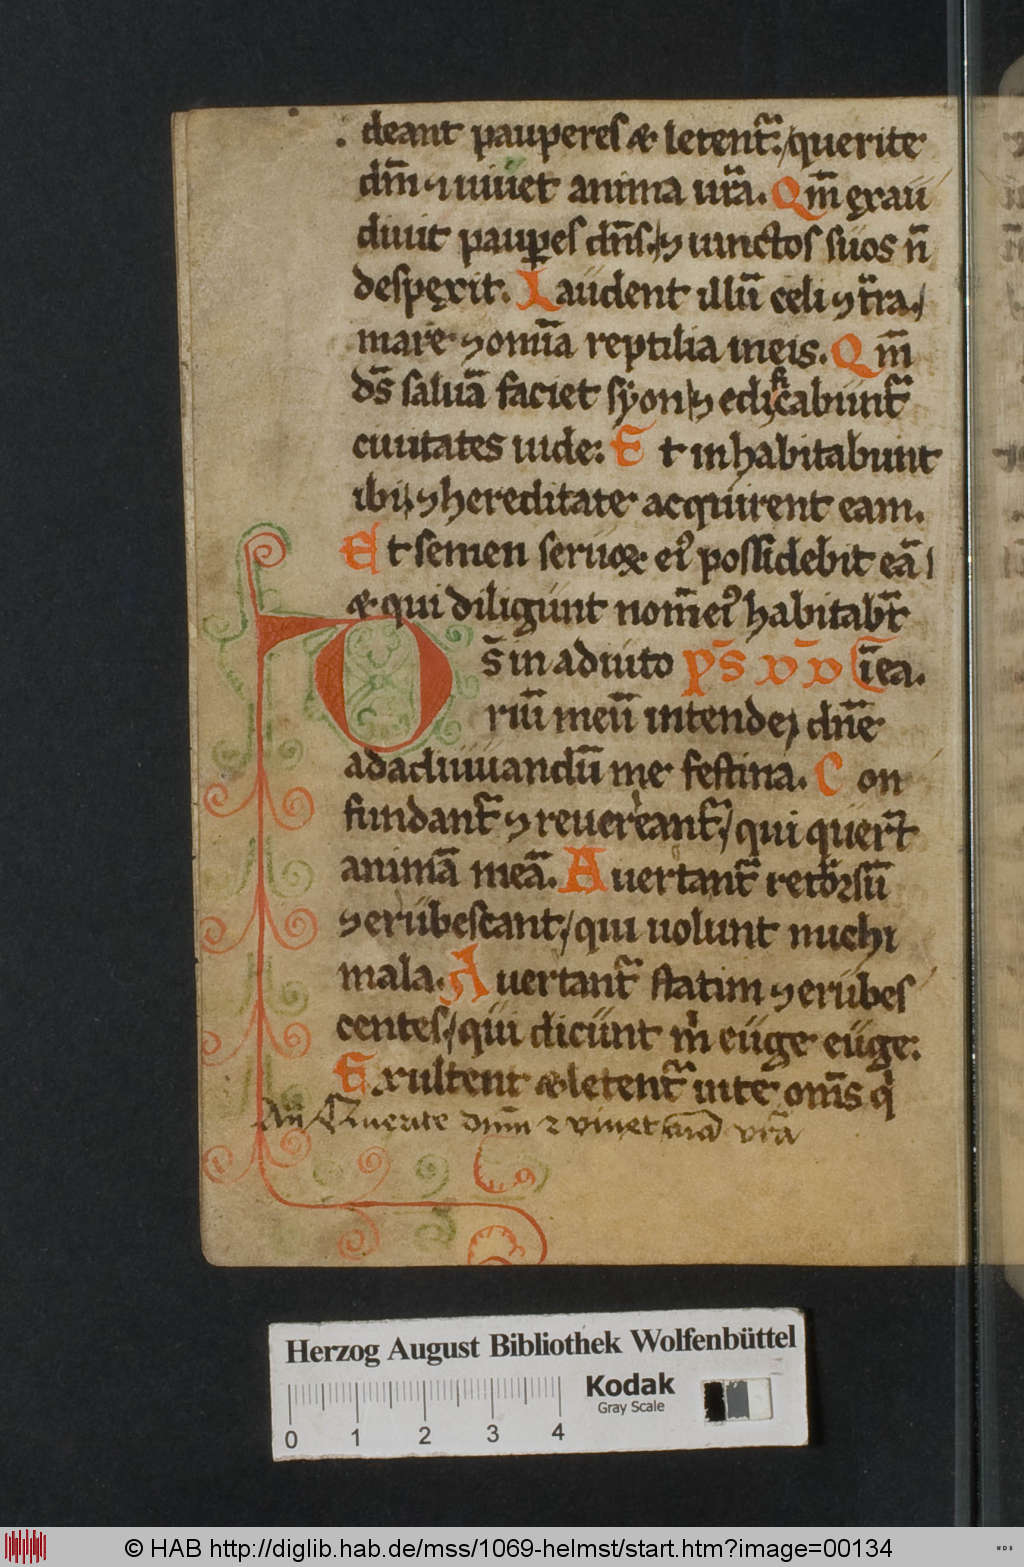 deant pauperes & letent᷑. querite
dm̄ ⁊ uiuet anima ur̄a. Qm̄ exau
diuit paup̲es dn̄s. ⁊ uinctos suos n̄
despexit. Laudent illū celi ⁊ t̄ra.
mare ⁊ omīa reptilia in eis. Qm̄
ds̄ saluā faciet syon ⁊ edificabunt᷑
ciuitates iude: Et inhabitabunt
ibi, ⁊ hereditate acquirent eam.
Et semen seruoꝝ eiꝰ possidebit eā
& qui diligunt nom̄ eiꝰ habitabt̄
D s̄ in adiuto PS VV ī ea.
riū meū intende, dn̄e
ad adiuuandū me festina. Con
fundant᷑ ⁊ reuereant᷑, qui quer̄t
animā meā. Auertant᷑ retrorsū
⁊ erubescant, qui uolunt michi
mala. Auertant᷑ statim ⁊ erubes
centes, qui dicunt m̄ euge euge.
Exultent & letent᷑ in te om̄s q̇
An̄ Querite dnm̄ ⁊ viuet aīa vr̄a
Herzog August Bibliothek Wolfenbüttel
Kodak
Gray Scale
0 1 2 3 4
© HAB http://diglib.hab.de/mss/1069-helmst/start.htm?image=00134